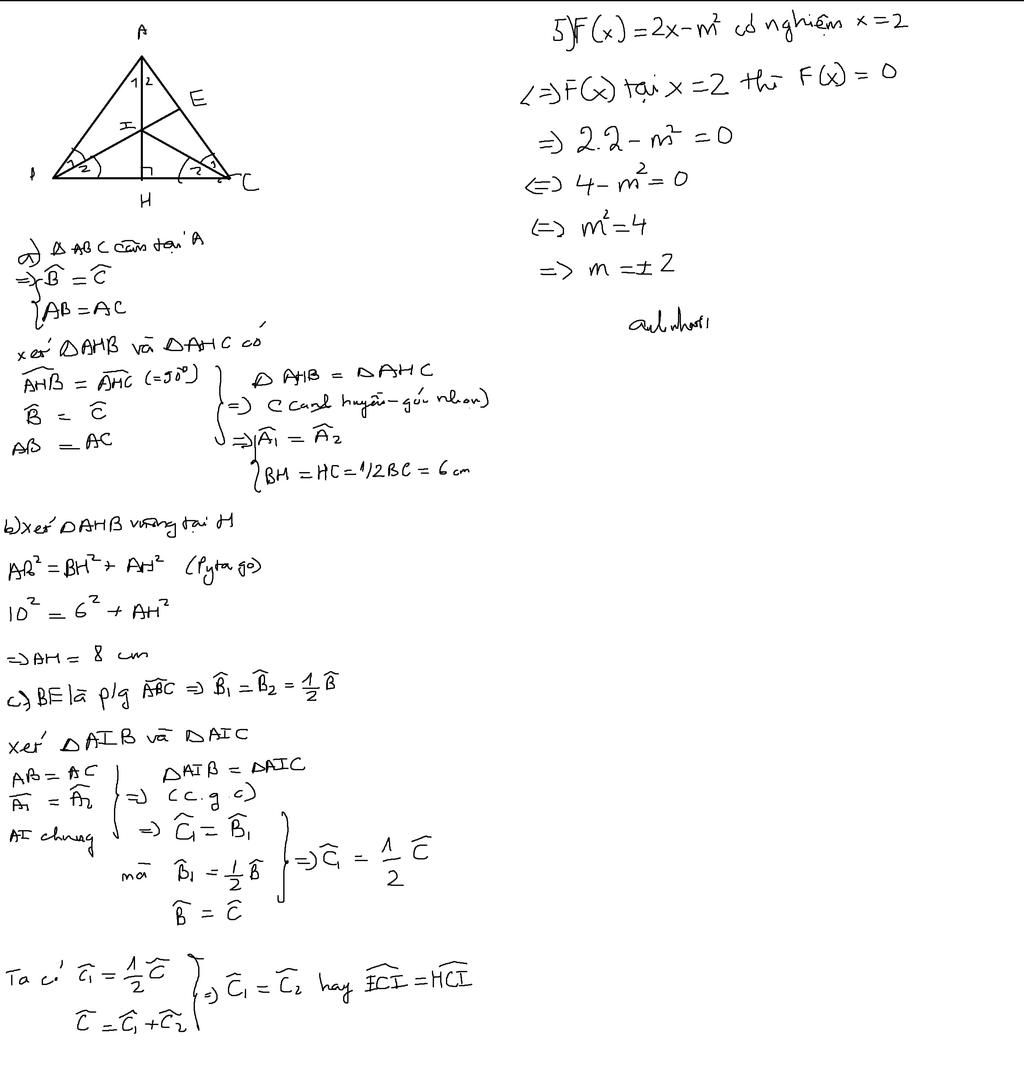 A
1 2
E
I
1 2
2 1
C
H
a) Δ ABC cân tại A
=> { B̂ = Ĉ
AB = AC
xét ΔAHB và ΔAHC có
AHB̂ = AHĈ (=90°)
B̂ = Ĉ
AB = AC
=> Δ AHB = ΔAHC
(cạnh huyền - góc nhọn)
=> { Â₁ = Â₂
BH = HC = 1/2BC = 6 cm
b) xét ΔAHB vuông tại H
AB² = BH² + AH² (Pytago)
10² = 6² + AH²
=> AH = 8 cm
c) BE là p/g ABĈ => B̂₁ = B̂₂ = 1/2 B̂
xét ΔAIB và ΔAIC
AB = AC
Â₁ = Â₂
AI chung
=> ΔAIB = ΔAIC
(c.g.c)
=> Ĉ₁ = B̂₁
mà B̂₁ = 1/2 B̂
B̂ = Ĉ
=> Ĉ₁ = 1/2 Ĉ
Ta có Ĉ₁ = 1/2 Ĉ
Ĉ = Ĉ₁ + Ĉ₂
=> Ĉ₁ = Ĉ₂ hay ECI = HCI
5) F(x) = 2x - m² có nghiệm x = 2
<=> F(x) tại x = 2 thì F(x) = 0
=> 2.2 - m² = 0
<=> 4 - m² = 0
<=> m² = 4
=> m = ± 2